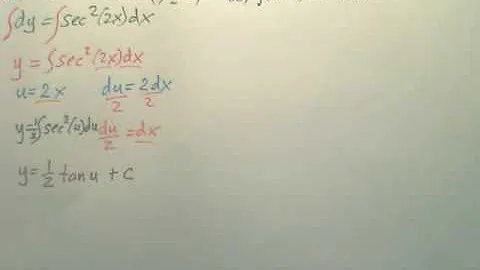 ∫dy = ∫sec²(2x)dx
y = ∫sec²(2x)dx
u = 2x du/2 = 2dx/2
y = 1/2 ∫sec²(u)du du/2 = dx
y = 1/2 tan u + C